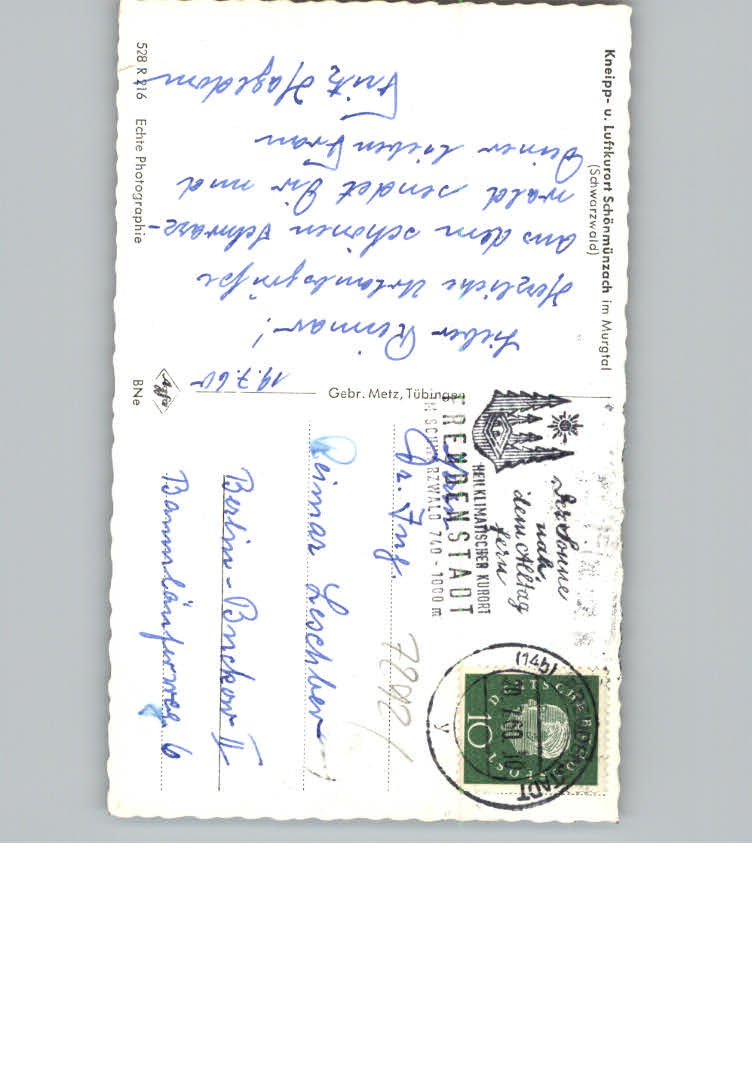 Kneipp- u. Luftkurort Schönmünzach im Murgtal
(Schwarzwald)
19.7.60
Lieber Reimar!
Herzliche Urlaubsgrüße
aus dem schönen Schwarz-
wald sendet Dir und
Deiner lieben Frau
Fritz Hagedorn
528 R 216 Echte Photographie
Gebr. Metz, Tübingen
Agfa
BNe
Der Sonne
nah,
dem Alltag
fern
HEILKLIMATISCHER KURORT
FREUDENSTADT
IM SCHWARZWALD 740-1000 m
(14b) FREUDENSTADT
20.7.60-10
y
DEUTSCHE BUNDESPOST
10
Herrn
Dr. Ing.
Reimar Leschber
Berlin-Buckow II
Baumläuferweg 6